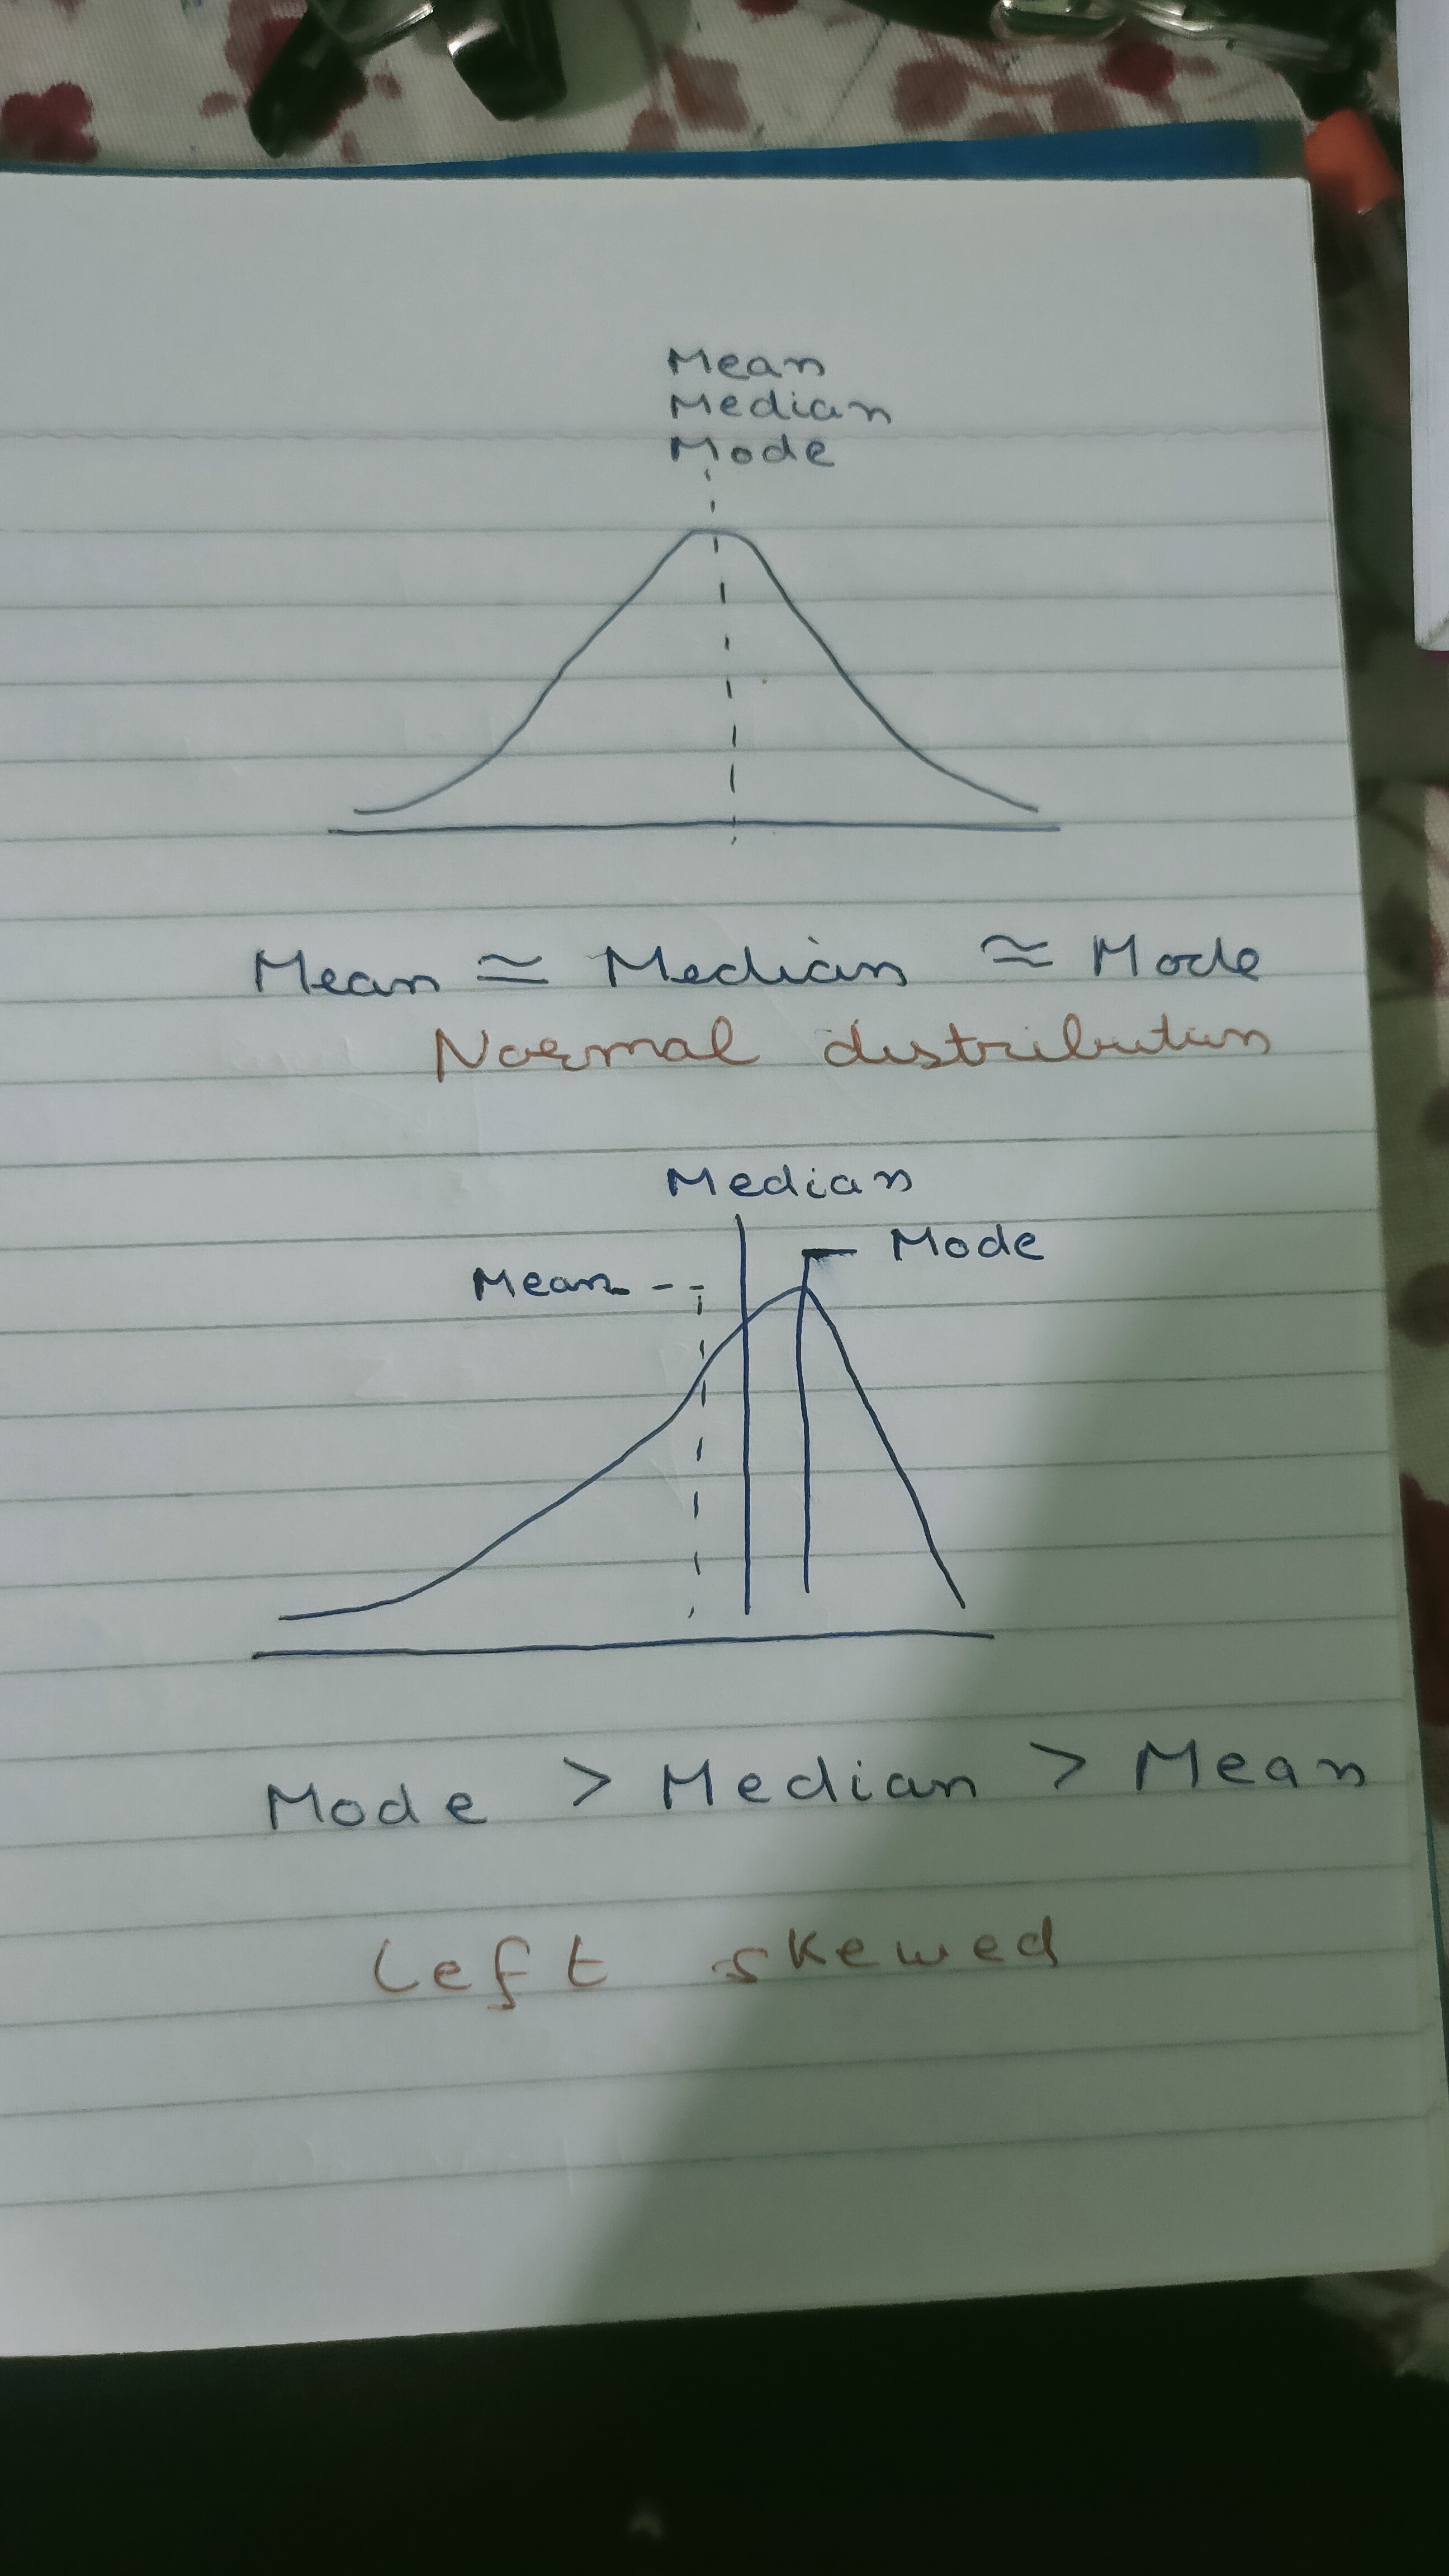 Mean
Median
Mode
Mean ≅ Median ≈ Mode
Normal distribution
Median
Mode
Mean
Mode > Median > Mean
Left skewed